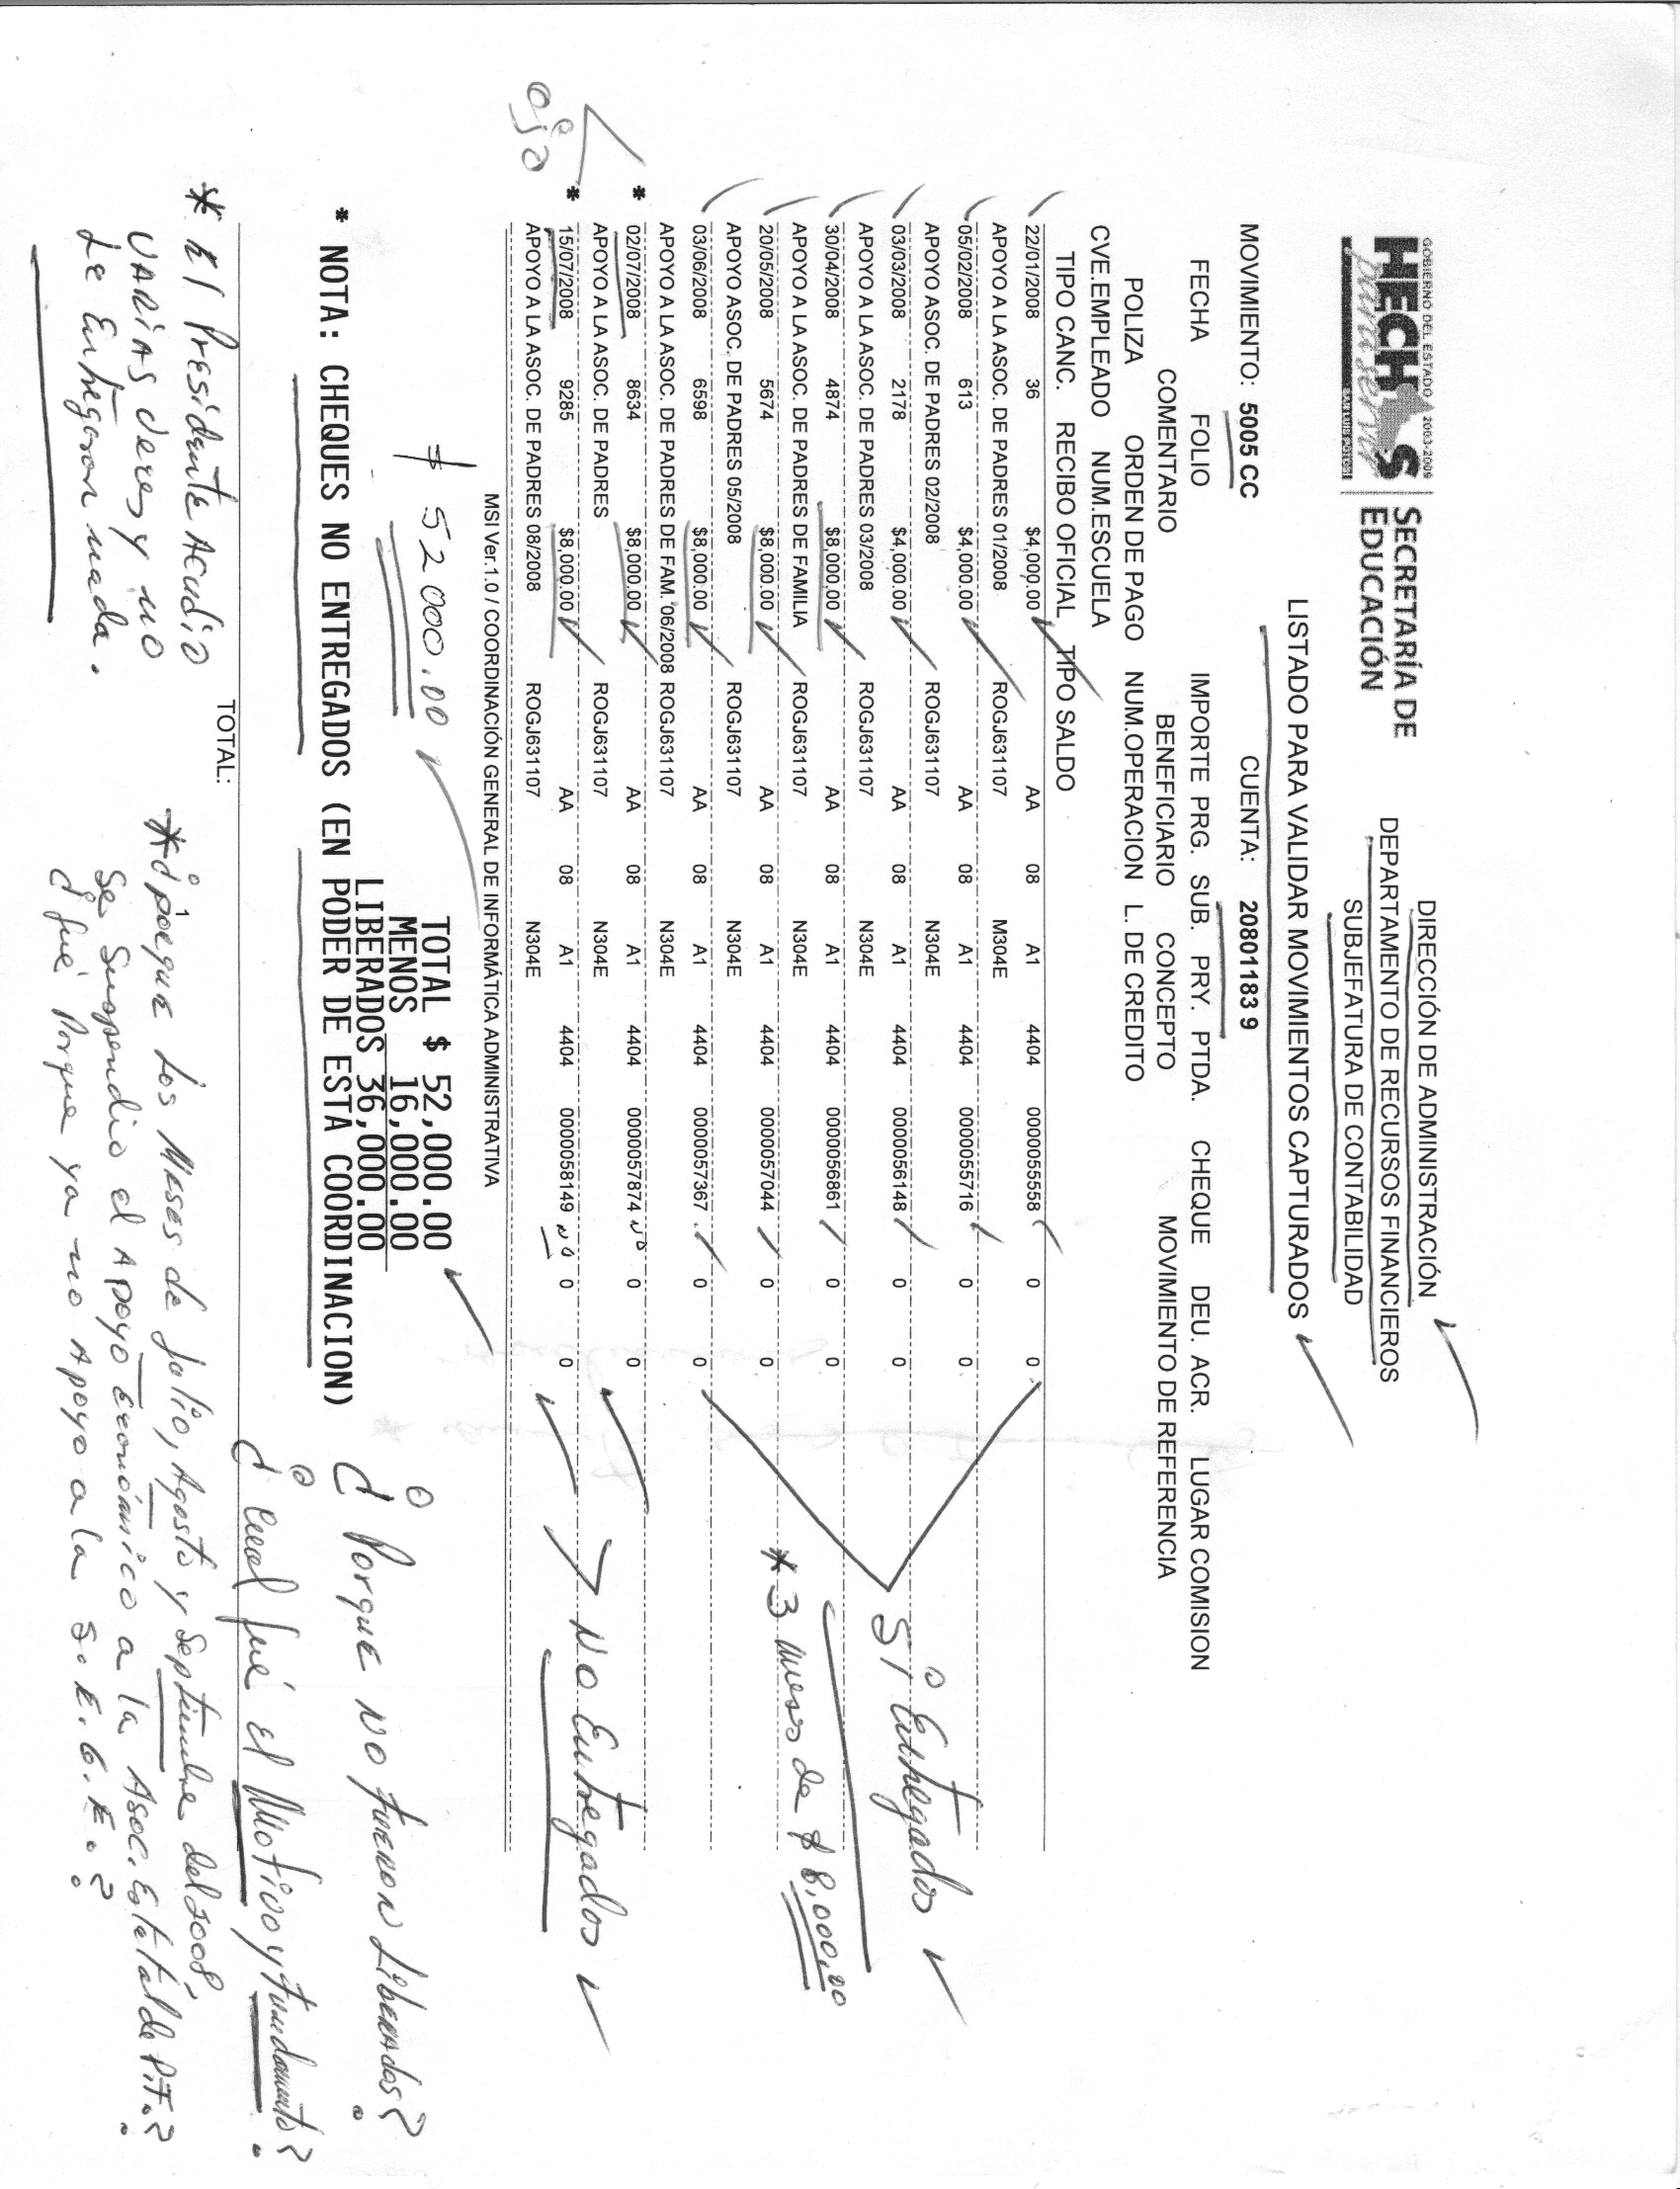 GOBIERNO DEL ESTADO 2003-2009
HECHOS
para servir
SAN LUIS POTOSI
SECRETARÍA DE
EDUCACIÓN
DIRECCIÓN DE ADMINISTRACIÓN
DEPARTAMENTO DE RECURSOS FINANCIEROS
SUBJEFATURA DE CONTABILIDAD
LISTADO PARA VALIDAR MOVIMIENTOS CAPTURADOS
MOVIMIENTO: 5005 CC CUENTA: 20801183 9
FECHA FOLIO IMPORTE PRG. SUB. PRY. PTDA. CHEQUE DEU. ACR. LUGAR COMISION
COMENTARIO BENEFICIARIO CONCEPTO MOVIMIENTO DE REFERENCIA
POLIZA ORDEN DE PAGO NUM.OPERACION L. DE CREDITO
CVE.EMPLEADO NUM.ESCUELA
TIPO CANC. RECIBO OFICIAL TIPO SALDO
22/01/2008 36 $4,000.00 AA 08 A1 4404 0000055558 0 0
APOYO A LA ASOC. DE PADRES 01/2008 ROGJ631107 M304E
05/02/2008 613 $4,000.00 AA 08 A1 4404 0000055716 0 0
APOYO ASOC. DE PADRES 02/2008 ROGJ631107 N304E
03/03/2008 2178 $4,000.00 AA 08 A1 4404 0000056148 0 0
APOYO A LA ASOC. DE PADRES 03/2008 ROGJ631107 N304E
30/04/2008 4874 $8,000.00 AA 08 A1 4404 0000056861 0 0
APOYO A LA ASOC. DE PADRES DE FAMILIA ROGJ631107 N304E
20/05/2008 5674 $8,000.00 AA 08 A1 4404 0000057044 0 0
APOYO ASOC. DE PADRES 05/2008 ROGJ631107 N304E
03/06/2008 6598 $8,000.00 AA 08 A1 4404 0000057367 0 0
APOYO A LA ASOC. DE PADRES DE FAM. '06/2008 ROGJ631107 N304E
* 02/07/2008 8634 $8,000.00 AA 08 A1 4404 0000057874 No 0 0
APOYO A LA ASOC. DE PADRES ROGJ631107 N304E
* 15/07/2008 9285 $8,000.00 AA 08 A1 4404 0000058149 No 0 0
APOYO A LA ASOC. DE PADRES 08/2008 ROGJ631107 N304E
ojo
Si Entregados
* 3 meses de $ 8,000.00
No Entregados
MSI Ver.1.0 / COORDINACIÓN GENERAL DE INFORMÁTICA ADMINISTRATIVA
$ 52 000.00
TOTAL $ 52,000.00
MENOS 16,000.00
LIBERADOS 36,000.00
* NOTA: CHEQUES NO ENTREGADOS (EN PODER DE ESTA COORDINACION)
¿Porque NO fueron Liberados?
¿Cual fué el Motivo y fundamento?
TOTAL:
* El Presidente Acudio
VARias veces y no
Le Entregaron nada.
* ¿porque Los Meses de Julio, Agosto y Septiembre del 2008
Se Suspendio el Apoyo Económico a la Asoc. Estatal de P.F.?
¿fué Porque ya no Apoyo a la S.E.G.E.?